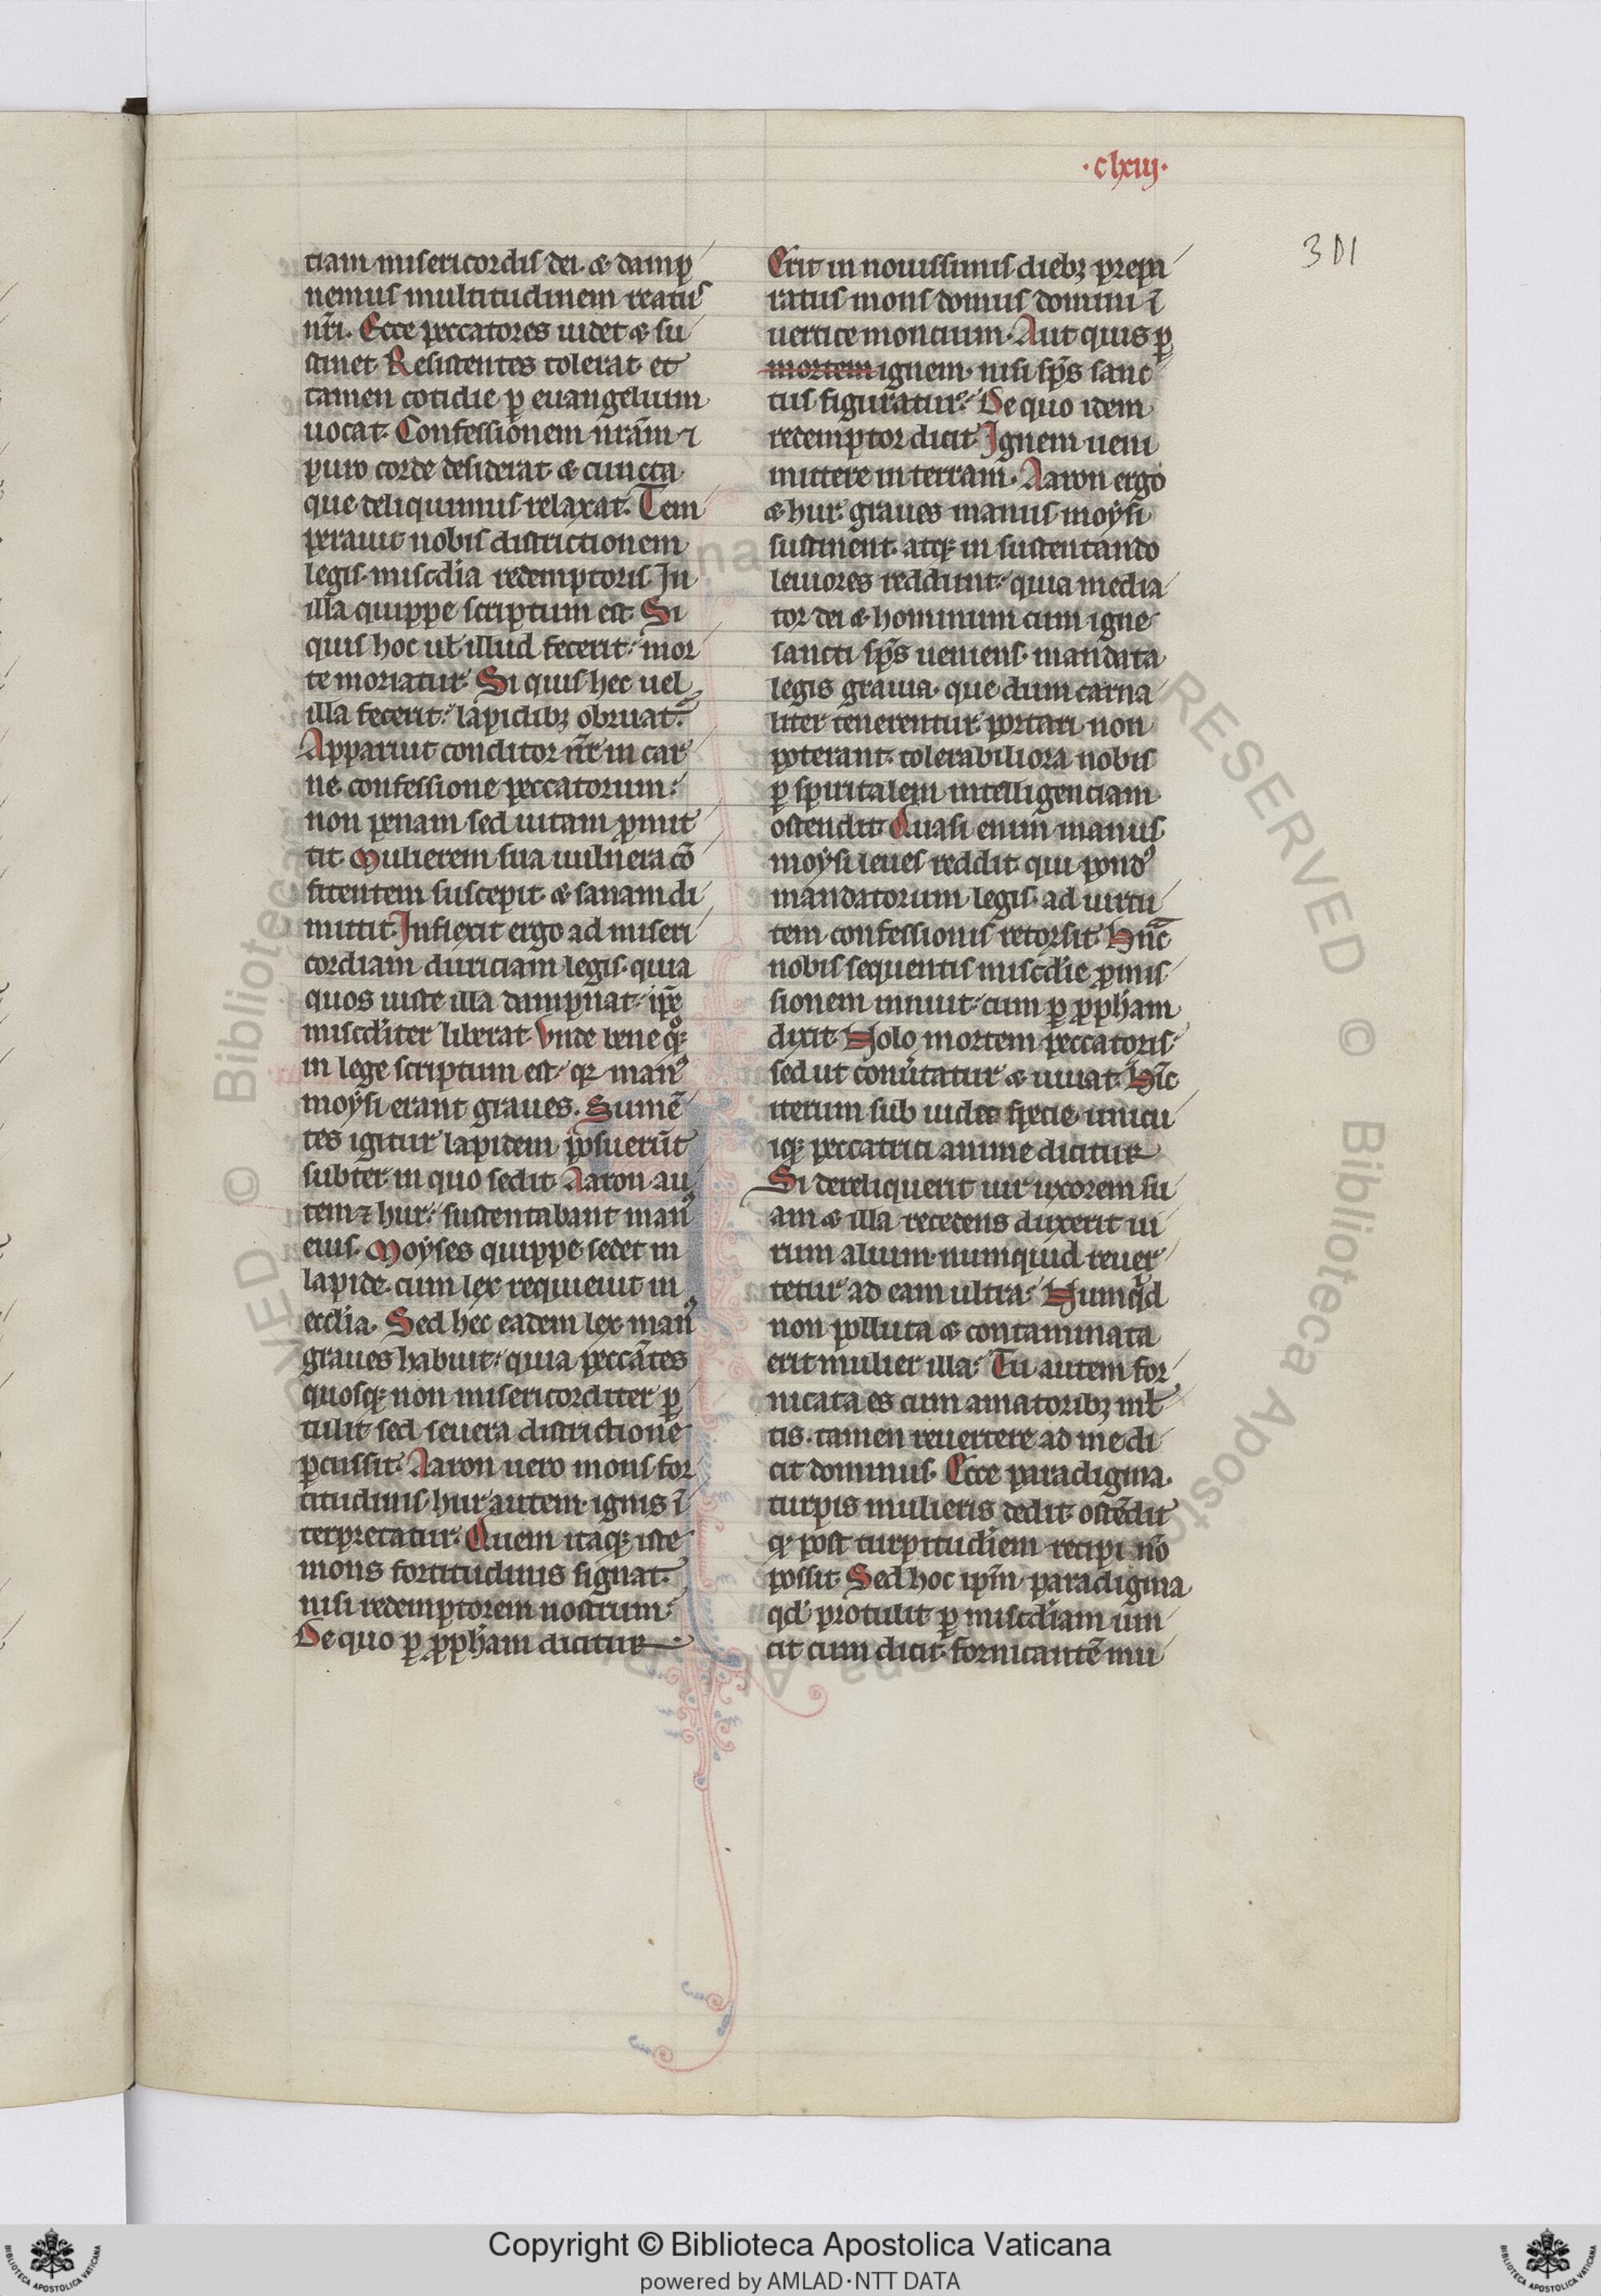 ·clxiij·
301
ciam misericordis dei. & dampp
nemus multitudinem reatus
nr̄i. Ecce peccatores uidet & su
stinet. Resistentes tolerat. et
tamen cotidie ꝑ euangelium
uocat. Confessionem nrām ⁊
puro corde desiderat & cuncta
que deliquimus relaxat. Tem
perauit nobis districtionem
legis. mis̄cdia redemptoris. In
illa quippe scriptum est. Si
quis hoc ul̄ illud fecerit. mor
te moriatur. Si quis hec uel
illa fecerit. lapidibꝫ obruat᷑.
Apparuit conditor nr̄ in car
ne confessione peccatorum.
non penam sed uitam ꝓmit
tit. Mulierem sua uulnera cō
fitentem suscepit. & sanam di
mittit. Inflexit ergo ad miseri
cordiam duriciam legis. quia
quos iuste illa dampnat. ip̄e
mis̄cditer liberat. Vnde bene qͦꝫ
in lege scriptum est. qꝛ manꝰ
moysi erant graues. Sumē
tes igitur lapidem ꝓposuerūt
subter. in quo sedit. Aaron au
tem ⁊ hur. sustentabant manꝰ
eius. Moyses quippe sedet in
lapide. cum lex requieuit in
eccl̄ia. Sed hec eadem lex manꝰ
graues habuit. quia peccātes
quosqꝫ non misericorditer ꝑ
tulit sed seuera districtione
ꝑcussit. Aaron uero mons for
titudinis. hur autem. ignis ī
terpretatur. Quem itaqꝫ iste
mons fortitudinis signat.
nisi redemptorem nostrum.
De quo ꝑ ꝓph̄am dicitur
Erit in nouissimis diebꝫ prepa
ratus mons domus domini ī
uertice moncium. Aut quis ꝑ
mortem ignem. nisi sp̄s sanc
tus figuratur. De quo idem
redemptor dicit. Ignem ueni
mittere in terram. Aaron ergo
& hur. graues manus moysi
sustinent. atqꝫ in sustentando
leuiores reddunt. quia media
tor dei & hominum cum igne
sancti sp̄s ueniens. mandata
legis grauia. que dum carna
liter tenerentur. portari non
poterant. tolerabiliora nobis
ꝑ spiritalem intelligenciam
ostendit. Quasi enim manus
moysi leues reddit. qui pondꝰ
mandatorum legis. ad uirtu
tem confessionis retorsit. Hūc
nobis sequentis mis̄cdie ꝓmis
sionem innuit. cum ꝑ ꝓph̄am
dixit. Nolo mortem peccatoris.
sed ut conūtatur & uiuat. Hīc
iterum sub iudee specie. unicu
iqꝫ peccatrici anime dicitur
Si dereliquerit uir uxorem su
am & illa recedens duxerit ui
rum alium. numquid reuer
tetur ad eam ultra. Numqͥd
non polluta & contaminata
erit mulier illa. Tu autem for
nicata es cum amatoribꝫ ml̄
tis. tamen reuertere ad me di
cit dominus. Ecce paradigma.
turpis mulieris dedit. ostēdit
qꝫ post turpitudīem recipi nō
possit. Sed hoc ip̄m paradigma
qd̄ protulit ꝑ mis̄cdiam uin
cit cum dicit. fornicantē mu
Copyright © Biblioteca Apostolica Vaticana
powered by AMLAD·NTT DATA